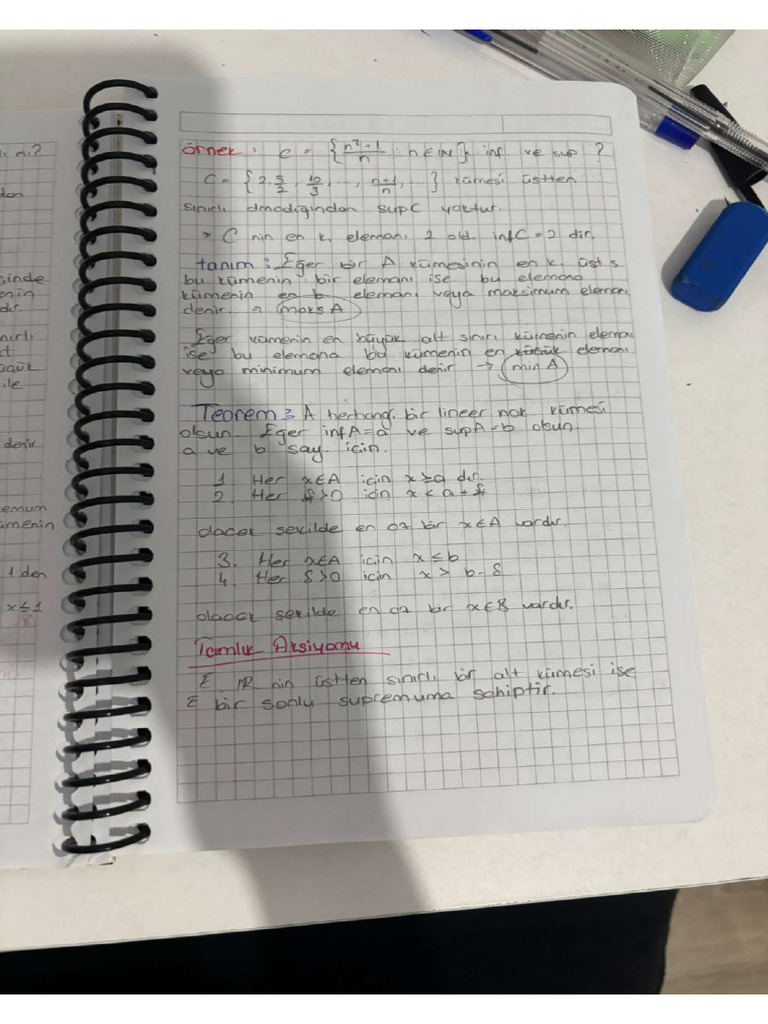 örnek : C = { n²-1/n : n∈IN} inf ve sup ?
C = { 2, 5/2, 10/3, ..., n+1/n, ... } kümesi üstten
sınırlı olmadığından supC yoktur.
* C nin en k. elemanı 2 old. infC = 2 dir.
tanım : Eğer bir A kümesinin en k. üst s.
bu kümenin bir elemanı ise bu elemana
kümenin en b elemanı veya maksimum elemanı
denir. → maks A
Eğer kümenin en büyük alt sınırı kümenin elemanı
ise bu elemana bu kümenin en küçük elemanı
veya minimum elemanı denir → min A
Teorem : A herhangi bir lineer nok. kümesi
olsun. Eğer infA=a ve supA=b olsun.
a ve b say. için.
1. Her x∈A için x≥a dır.
2. Her >0 için x < a +
olacak şekilde en az bir x∈A vardır.
3. Her x∈A için x ≤ b
4. Her δ>0 için x > b-δ
olacak şekilde en az bir x∈B vardır.
Tamlık Aksiyomu
E, IR nin üstten sınırlı bir alt kümesi ise
E bir sonlu supremuma sahiptir.
m?
inde
enin
dır
denir
emum
ümenin
1 den
x≤1